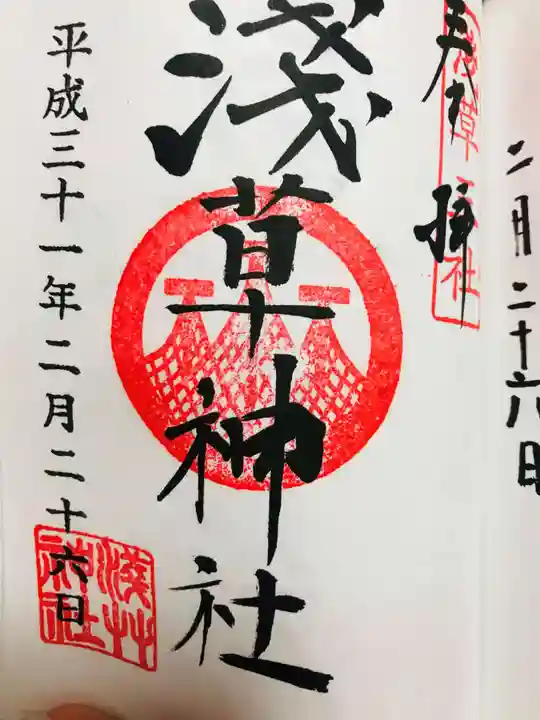 二月二十六日
奉拝
浅草神社
淺草神社
平成三十一年二月二十六日
淺草神社